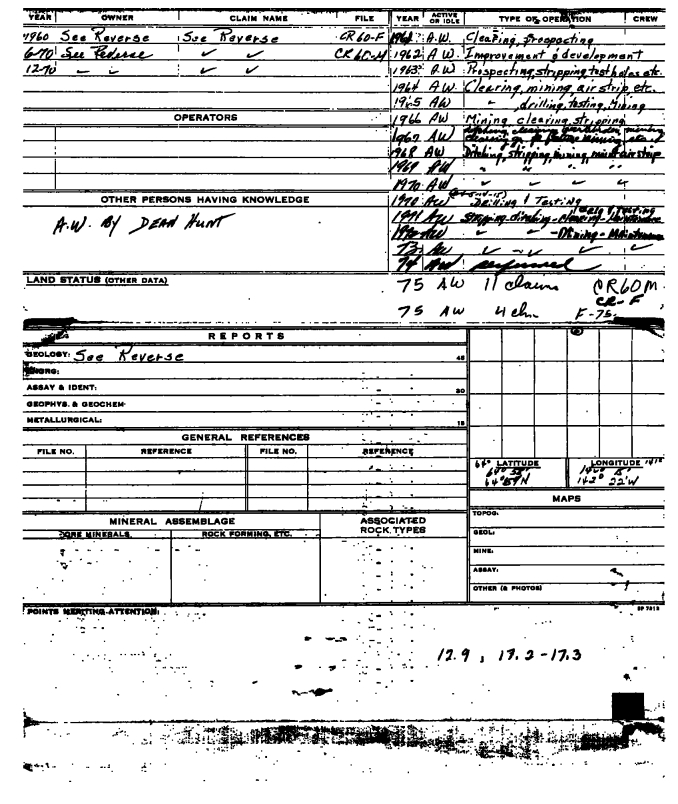 YEAR OWNER CLAIM NAME FILE YEAR ACTIVE OR IDLE TYPE OF OPERATION CREW
1960 See Reverse See Reverse CR 60-F 1961 A.W. Clearing, prospecting
6-70 See Reverse ✓ ✓ CR 60-M 1962 A W. Improvement & development
12-70 – – ✓ ✓ 1963 A.W. Prospecting, stripping, test holes etc.
1964 A.W. Clearing, mining, air strip etc.
1965 AW " drilling, testing, mining
OPERATORS 1966 AW Mining clearing, stripping
1967 AW
1968 AW Ditching, stripping, mining, maint airstrip
1969 AW " " " "
1970 AW ✓ ✓ ✓ ✓
OTHER PERSONS HAVING KNOWLEDGE 1970 AW Drilling & Testing
A.W. BY DEAN HUNT 1971 AW Stripping-ditching-clearing-
AW ✓ ✓ -Mining-Maintenance
73 AW ✓ -✓ ✓ ✓ ✓
74 AW performed
LAND STATUS (OTHER DATA) 75 AW 11 claims CR60M
CR-F
75 AW 4 clm F-75-
REPORTS
GEOLOGY: See Reverse 45
ENGRG:
ASSAY & IDENT: 30
GEOPHYS. & GEOCHEM:
METALLURGICAL: 15
GENERAL REFERENCES
FILE NO. REFERENCE FILE NO. REFERENCE
64° LATITUDE LONGITUDE 141°
64° 59'N 142° 22'W
MAPS
MINERAL ASSEMBLAGE ASSOCIATED ROCK TYPES TOPOG:
CORE MINERALS. ROCK FORMING, ETC. GEOL:
MINE:
ASSAY:
OTHER (& PHOTOS)
POINTS MERITING ATTENTION: SP 7813
12.9, 17.2-17.3